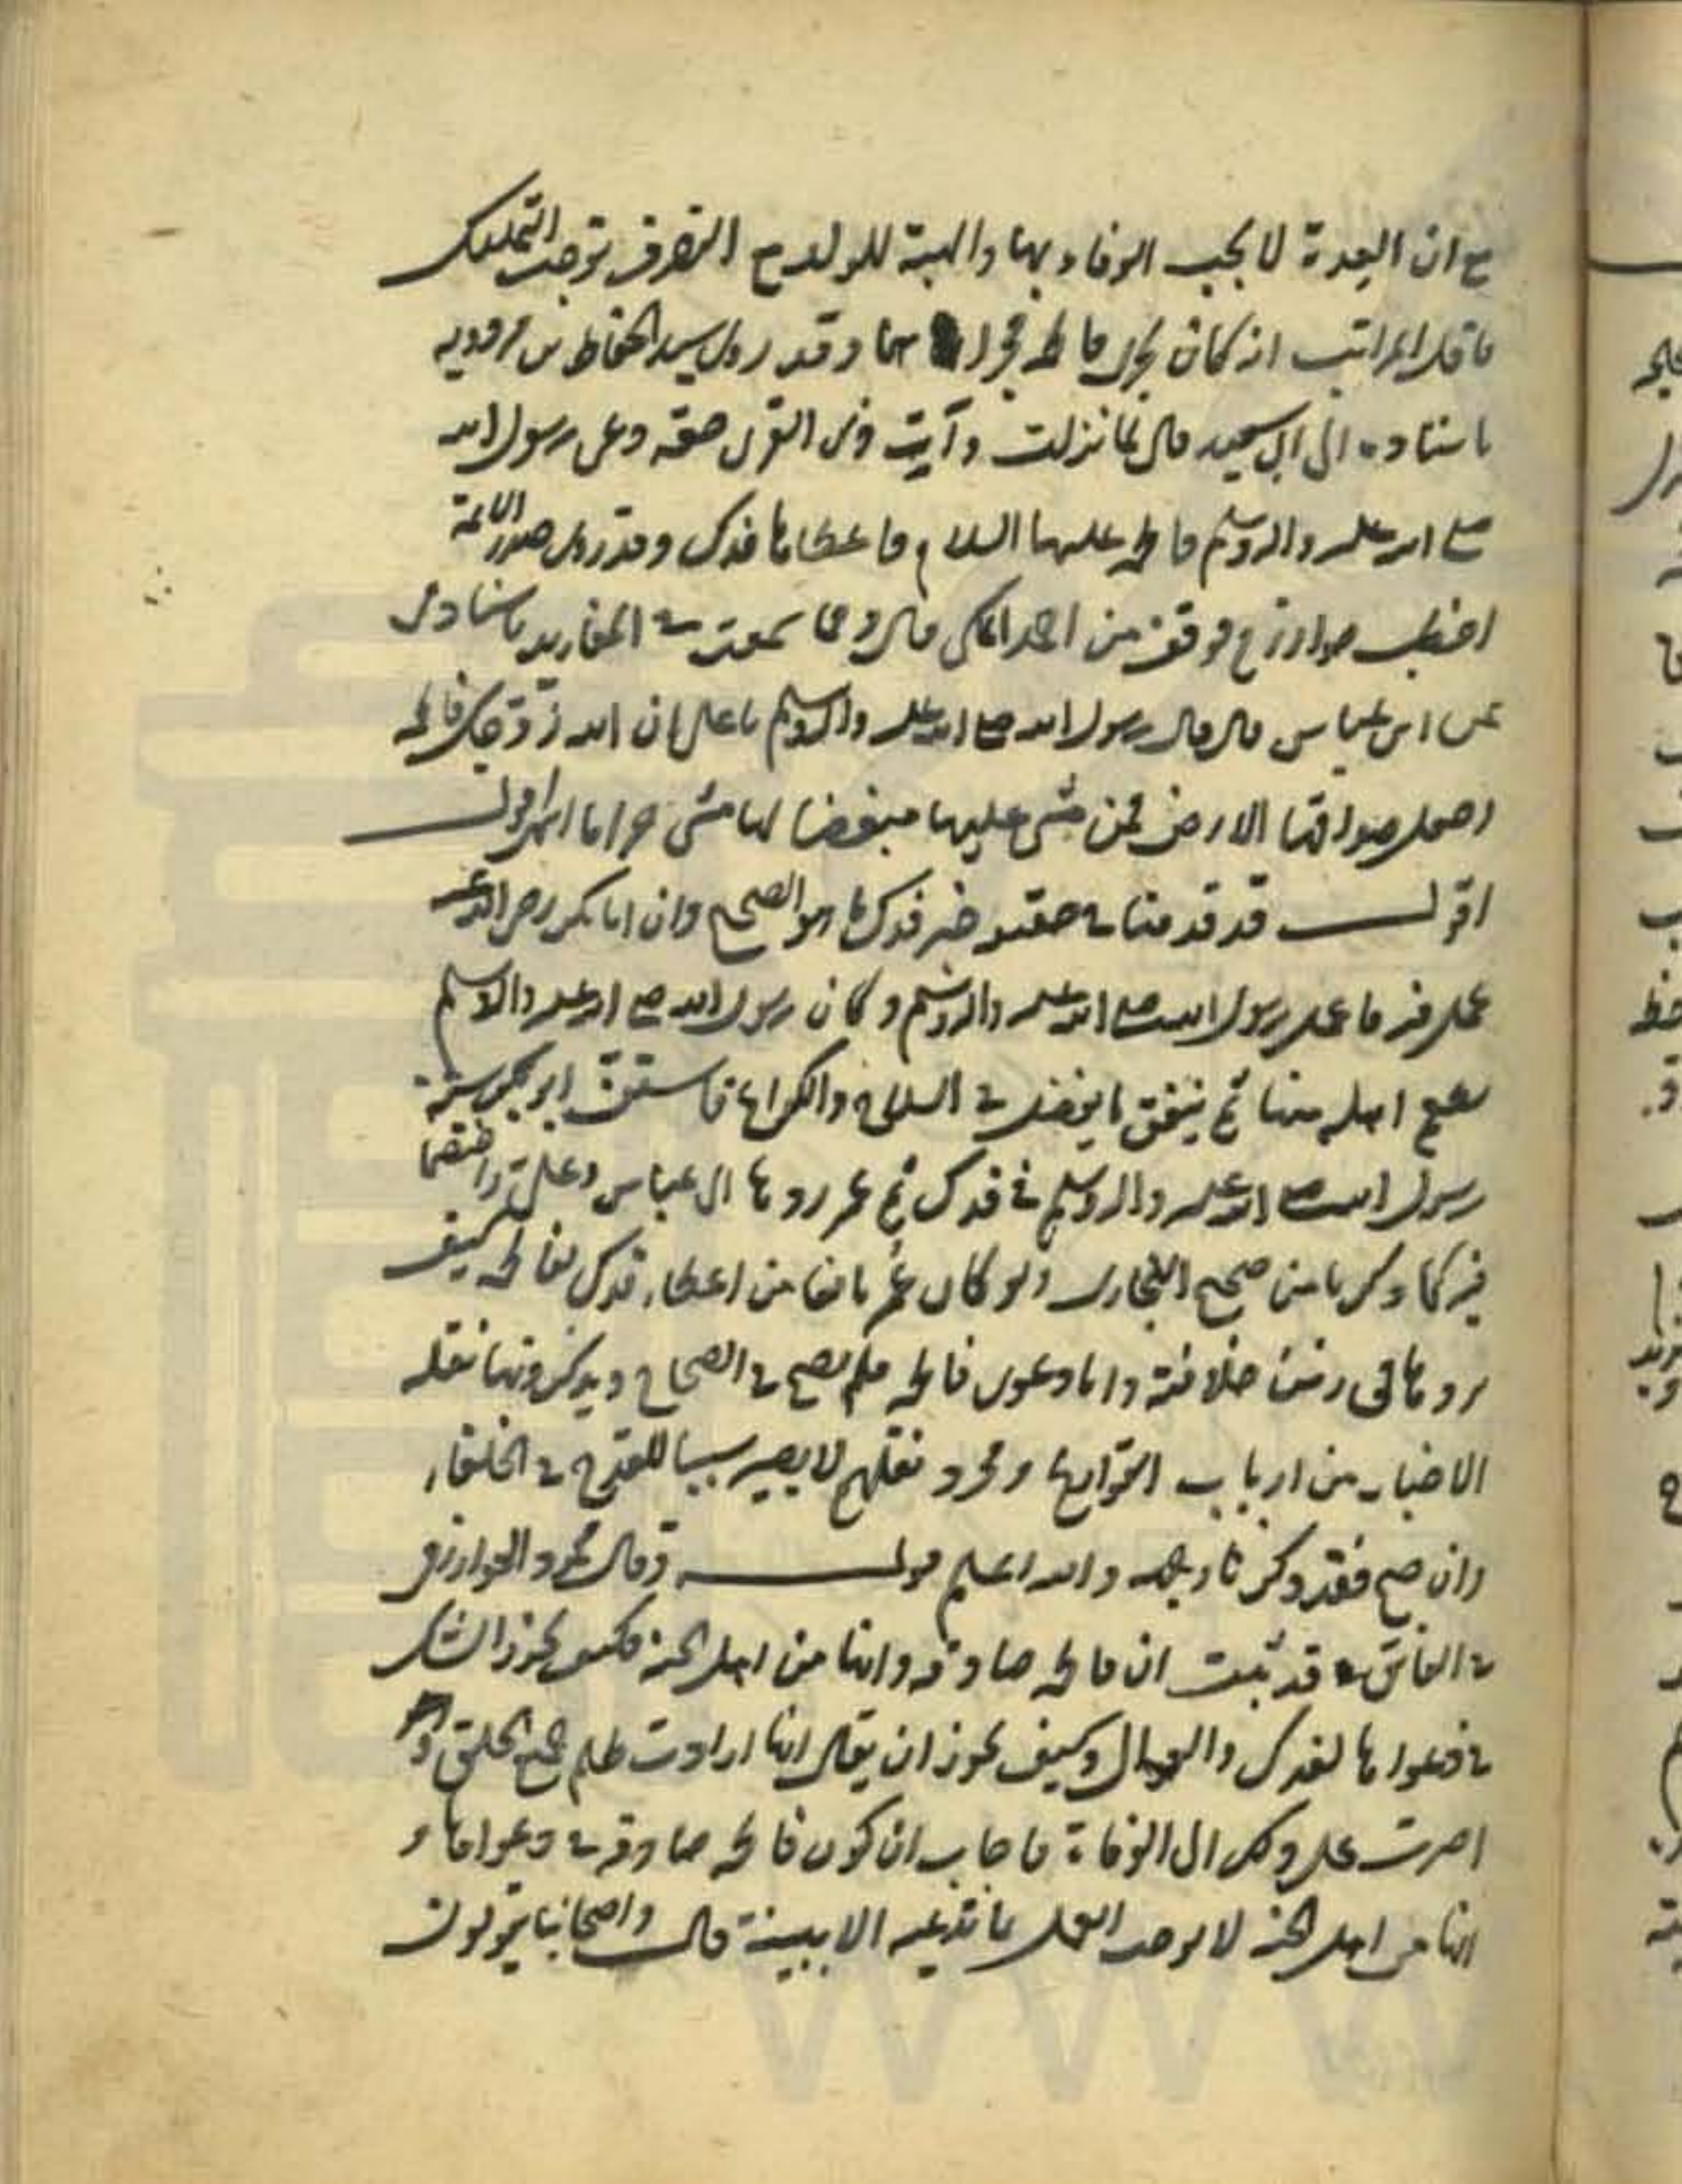 مع ان العدة لا يجب الوفاء بها والهبة للولد مع التصرف توجب التمليك
فاقل المراتب انه كان يجرى فاطمة مجراهما وقد روى سيد الحفاظ بن مردويه
باسناده الى ابى سعيد قال لما نزلت وآت ذى القربى حقه دعى رسول الله
صلى الله عليه وآله وسلم فاطمة عليها السلام فاعطاها فدك وقد روى صدر الائمة
اخطب خوارزم موفق بن احمد المكى قال ومما سمعت فى المفاريد باسنادى
عن ابن عباس قال قال رسول الله صلى الله عليه وآله وسلم يا على ان الله زوجك فاطمة
وجعل صداقها الارض فمن مشى عليها مبغضا لها مشى حراما انتهى
اقول قد قدمنا فى خبر فدك ما هو الصحيح وان ابا بكر رضى الله عنه
عمل فيه ما عمل رسول الله صلى الله عليه وآله وسلم وكان رسول الله صلى الله عليه وآله وسلم
اهله منها ثم ينفق ما يفضل فى السلاح والكراع ابو بكر سنة
رسول الله صلى الله عليه وآله وسلم فى فدك ثم عمر ردها الى عباس وعلى واختصما
فيه كما ذكرنا من صحيح البخارى ولو كان عمر مانعا من اعطاء فدك لفاطمة كيف
يردها فى زمن خلافته واما دعوى فاطمة فلم يصح فى الصحاح ويذكرونها نقلة
الاخبار من ارباب التواريخ ومجرد نقلهم لا يصير سببا للقدح فى الخلفاء
وان صح فقد ذكرنا وجهه والله اعلم قوله وقال محمود الخوارزمى
فى الفائق قد ثبت ان فاطمة صادقة وانها من اهل الجنة فكيف يجوز الشك
فى دعواها لفدك والعوالى وكيف يجوز ان يقال انها ارادت ظلم جميع الخلق و
اصرت على ذلك الى الوفاة فاجاب ان كون فاطمة صادقة فى دعواها و
انها من اهل الجنة لا يوجب العمل بما تدعيه الا ببينة قال واصحابنا يقولون